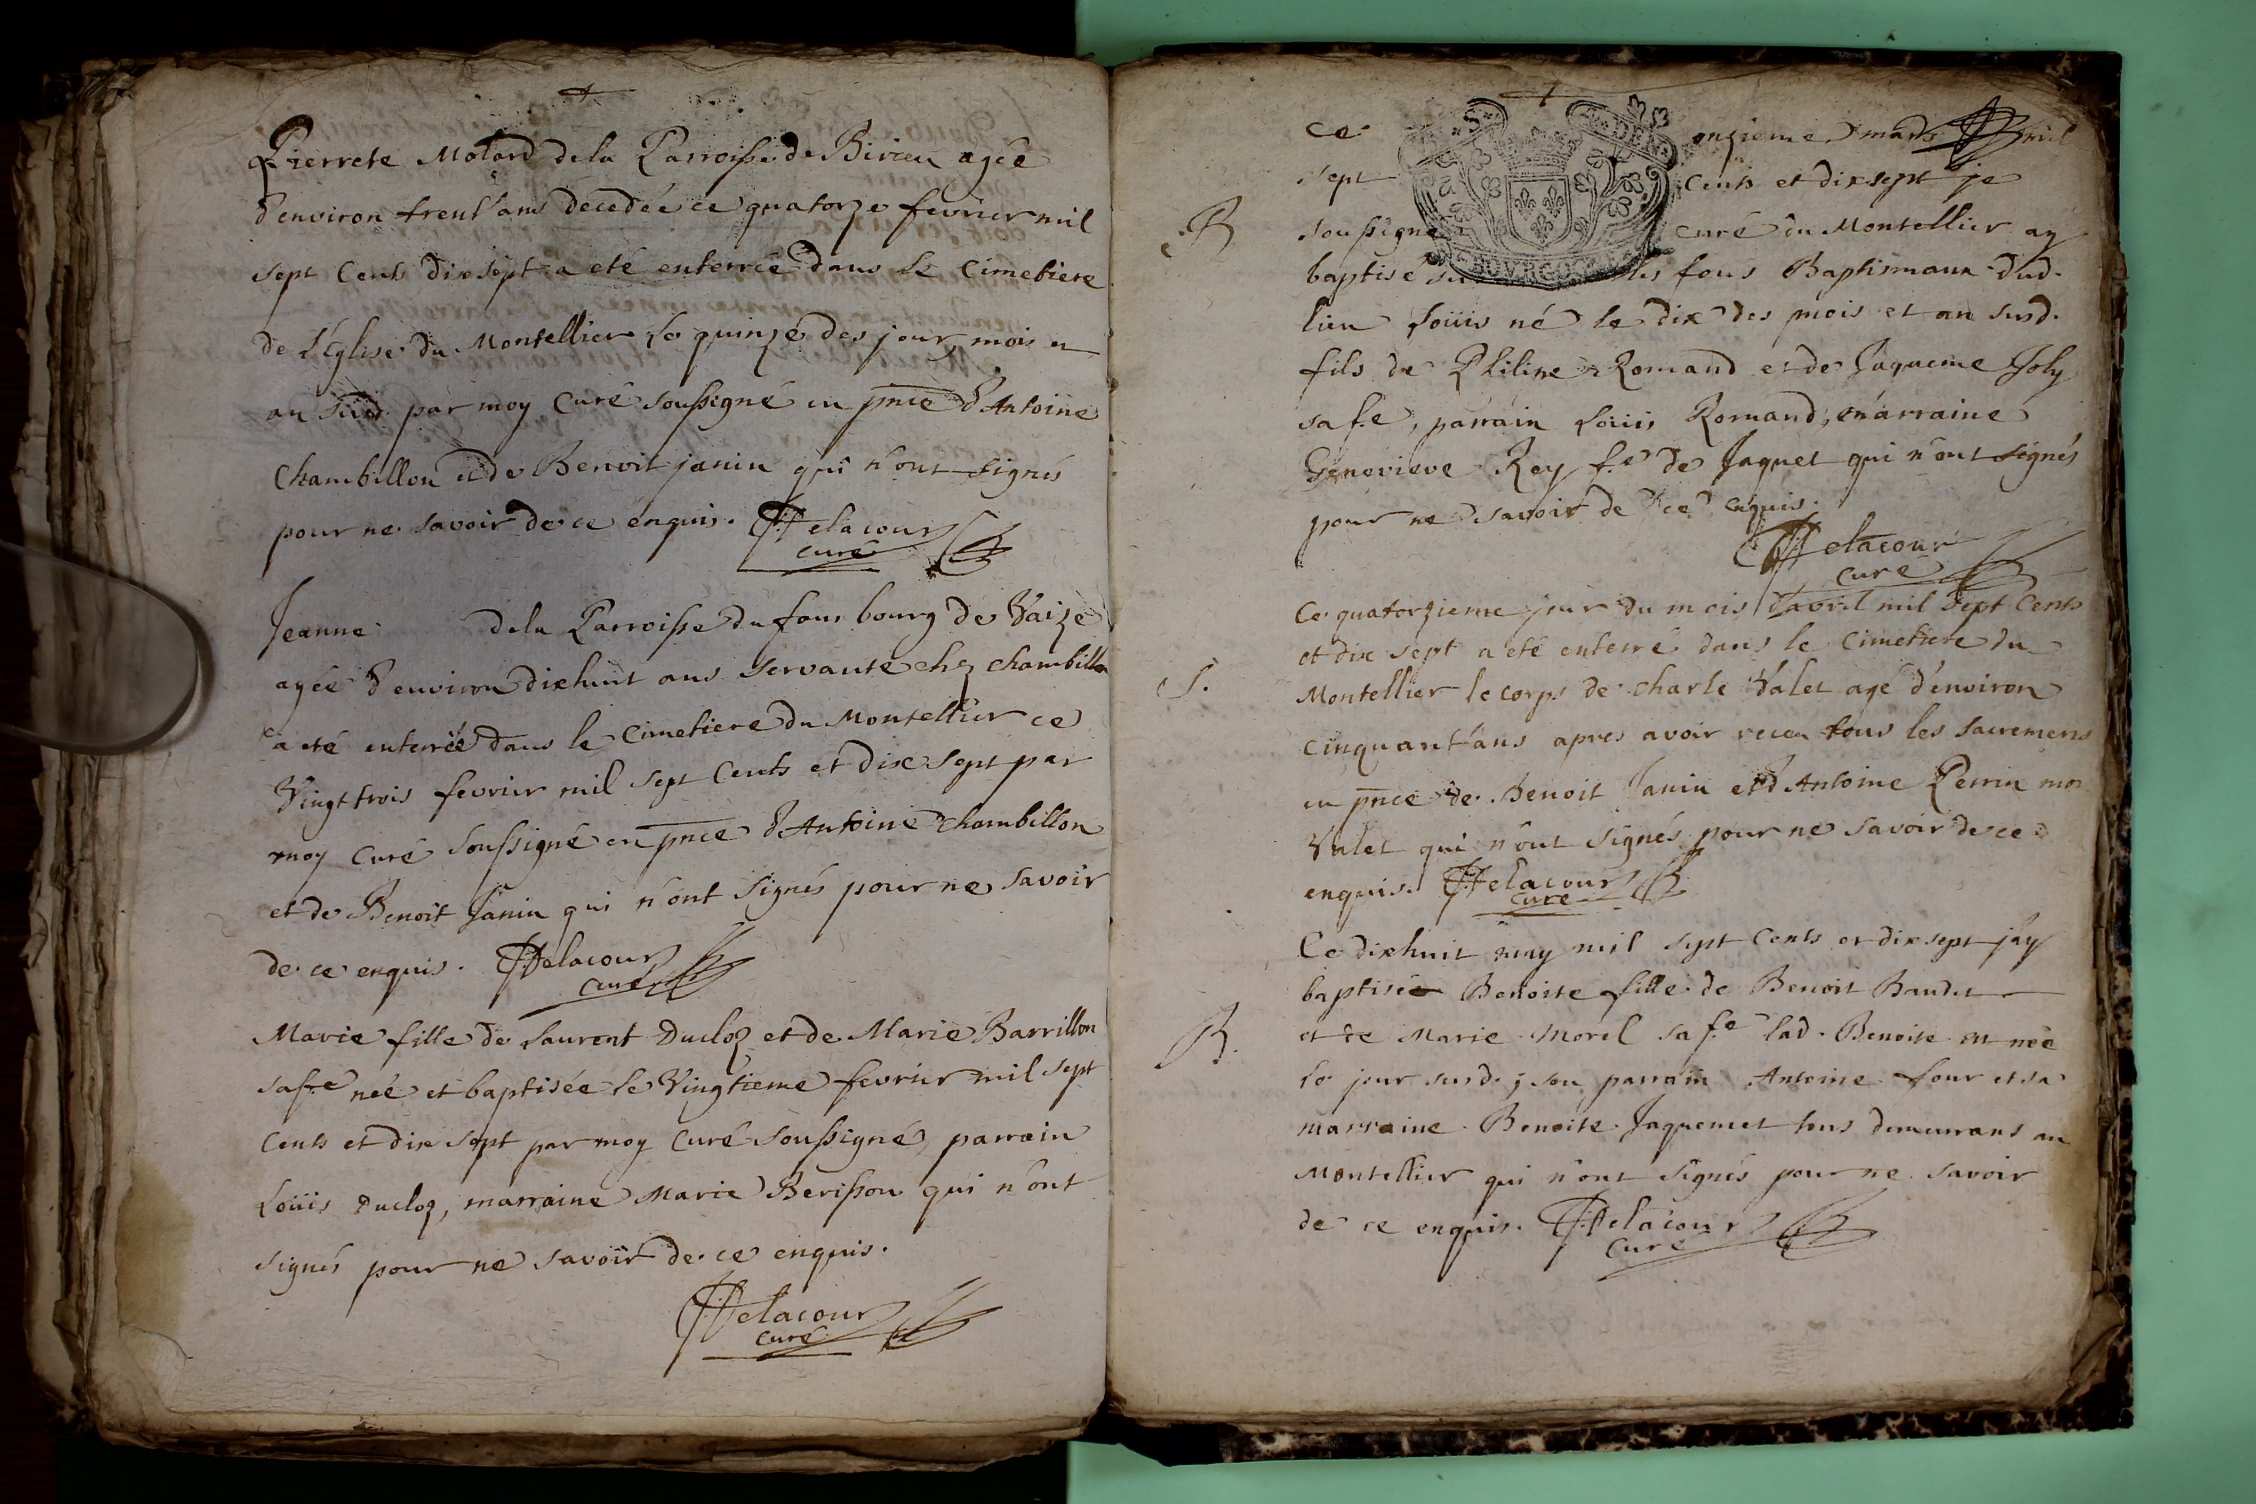 Pierrete Molard dela Parroisse de Birieu agée
d'environ trent'ans decedée ce quatorze fevrier mil
sept Cents dix sept a eté enterrée dans le Cimetiere
de l'Eglise du Montellier le quinze des jour, mois et
an susd. par moy Curé soussigné en pnce d'Antoine
Chambillon et de Benoit janin qui n'ont signés
pour ne savoir de ce enquis. Delacour
curé
Jeanne dela Parroisse du faux bourg de Vaize
agée d'environ dixhuit ans servante chez chambillon
a eté enterrée dans le Cimetiere du Montellier ce
Vingt trois fevrier mil sept Cents et dix sept par
moy Curé soussigné en pnce d'Antoine Chambillon
et de Benoit Janin qui n'ont signés pour ne savoir
de ce enquis. Delacour
curé
Marie fille de Laurent Ducloz et de Marie Barrillon
sa fe née et baptisée le Vingtieme fevrier mil sept
Cents et dix sept par moy Curé soussigné, parrain
Loüis Ducloz, marraine Marie Berisson qui n'ont
signés pour ne savoir de ce enquis.
Delacour
curé
ce onzieme mars mil
sept Cents et dix sept je
B soussigné curé du Montellier ay
baptisé sur les fons Baptismaux dud.
lieu Loüis né le dix des mois et an susd.
fils de Philipe Romand et de Jaqueme Joly
sa f.e, parrain Loüis Romand, marraine
Genevieve Rey f.e de Jaquet qui n'ont signés
pour ne savoir de ce enquis.
Delacour
curé
Ce quatorzieme jour du mois d'avril mil sept Cents
et dix sept a eté enterré dans le Cimetiere du
S. Montellier le corps de Charle Valet agé d'environ
cinquant'ans apres avoir receu tous les sacremens
en pnce de Benoit Janin et d'Antoine Perrin mon
Valet qui n'ont signés pour ne savoir de ce
enquis. Delacour
curé
Ce dixhuit may mil sept Cents et dix sept j'ay
baptisée Benoite fille de Benoit Baudet
B. et de Marie Morel sa f.e lad. Benoite est née
le jour susd. ; son parrain Antoine four et sa
marraine Benoite Jaquemet tous demeurans au
Montellier qui n'ont signés pour ne savoir
de ce enquis. Delacour
curé